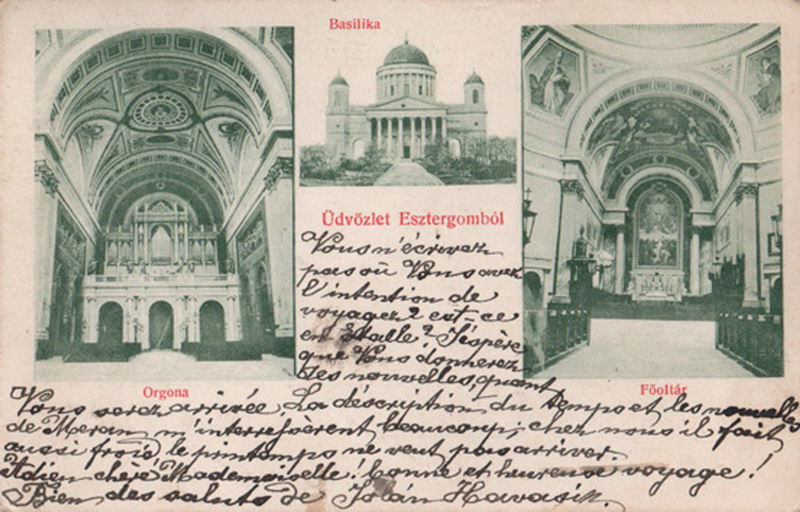 Basilika
Üdvözlet Esztergomból
Orgona
Főoltár
Vous n'écrivez
pas où Vous avez
l'intention de
voyager? est-ce
en Italie? J'éspère
que Vous donnerez
des nouvelles, quant
Vous serez arrivée La déscription du temps et les nouvelles
de Meran m'interresserent beaucoup; chez nous il fait
aussi froid le printemps ne veut pas arriver.
Adieu chère Mademoiselle! bonne et heureuse voyage!
Bien des saluts de Havasik.